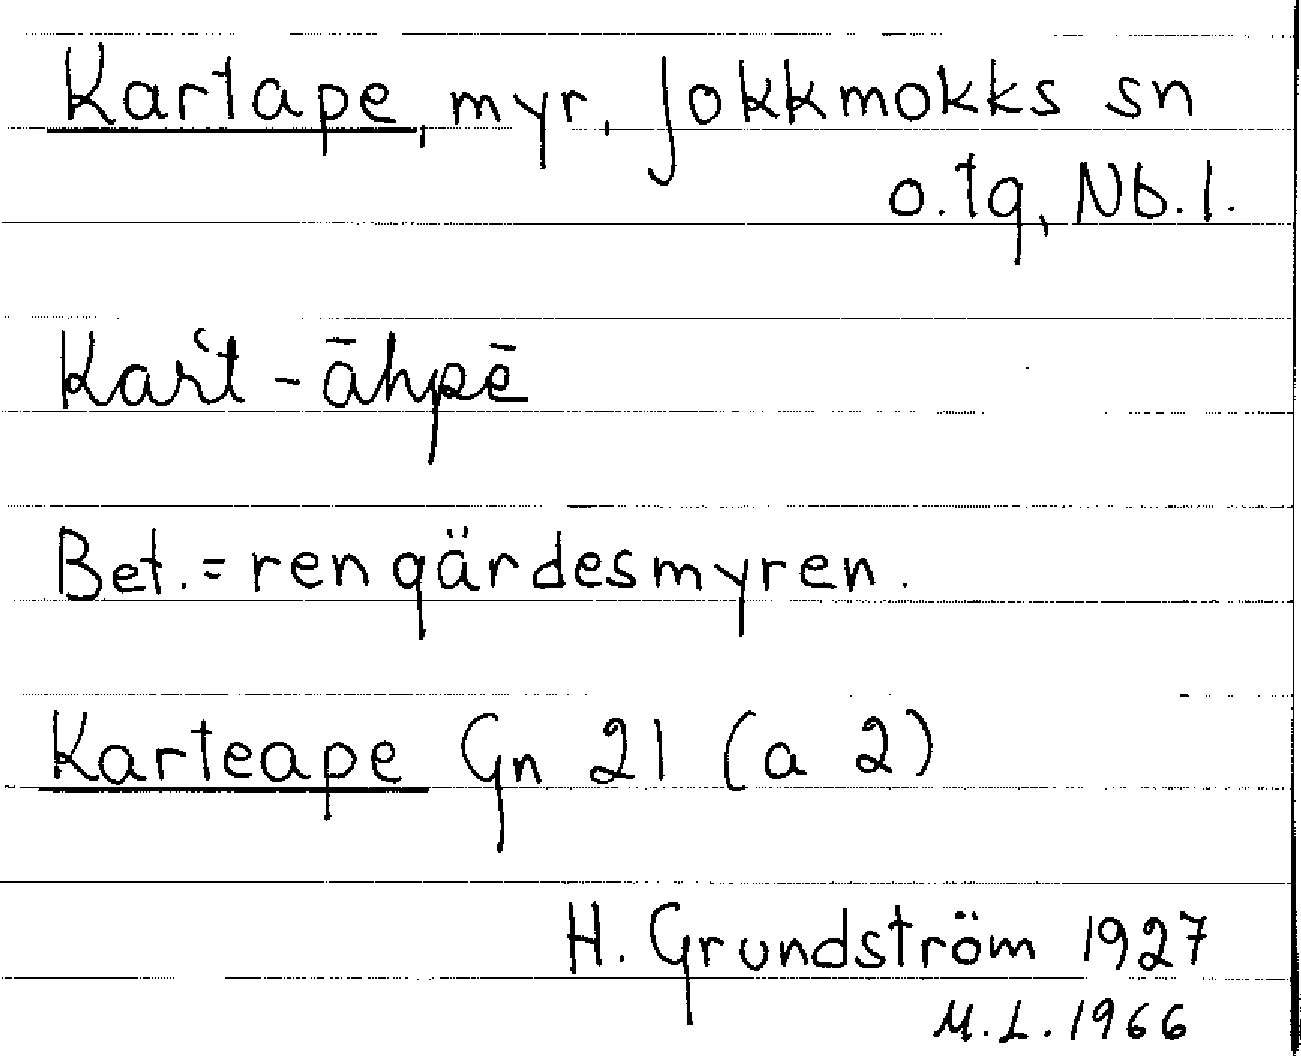 Kartape, myr, Jokkmokks sn
o. tg, Nb. l.
Kar̔t - āhpē
Bet. = rengärdesmyren.
Karteape Gn 21 (a 2)
H. Grundström 1927
M.L. 1966